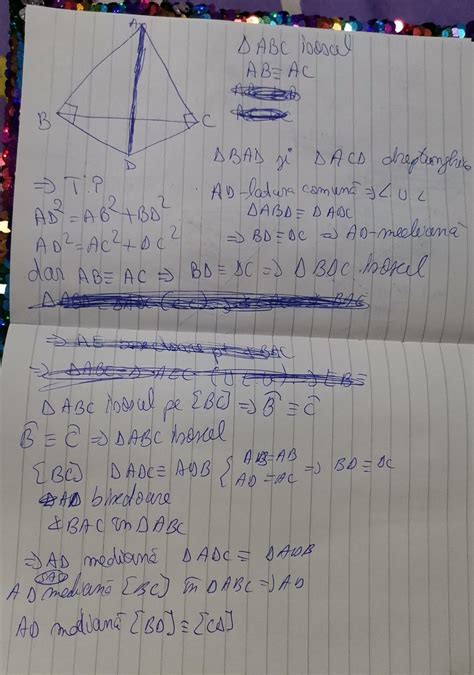 A
B
C
D
ΔABC isoscel
AB≡AC
ΔBAD și ΔACD dreptunghic
⇒ T.P
AD-latura comună ⇒
AD²=AB²+BD²
ΔABD≡ΔADC
AD²=AC²+DC²
⇒ BD≡DC ⇒ AD-mediană
dar AB≡AC ⇒ BD≡DC ⇒ ΔBDC isoscel
ΔABC isoscel pe [BC] ⇒ B̂≡Ĉ
B̂≡Ĉ ⇒ ΔABC isoscel
[BC] ΔADC≡ADB { AB≡AB
AD≡AC ⇒ BD≡DC
AD bisectoare
∢BAC în ΔABC
⇒ AD mediană ΔADC≡ΔADB
AD mediană [BC] în ΔABC ⇒ AD
AD mediană [BD]≡[CD]